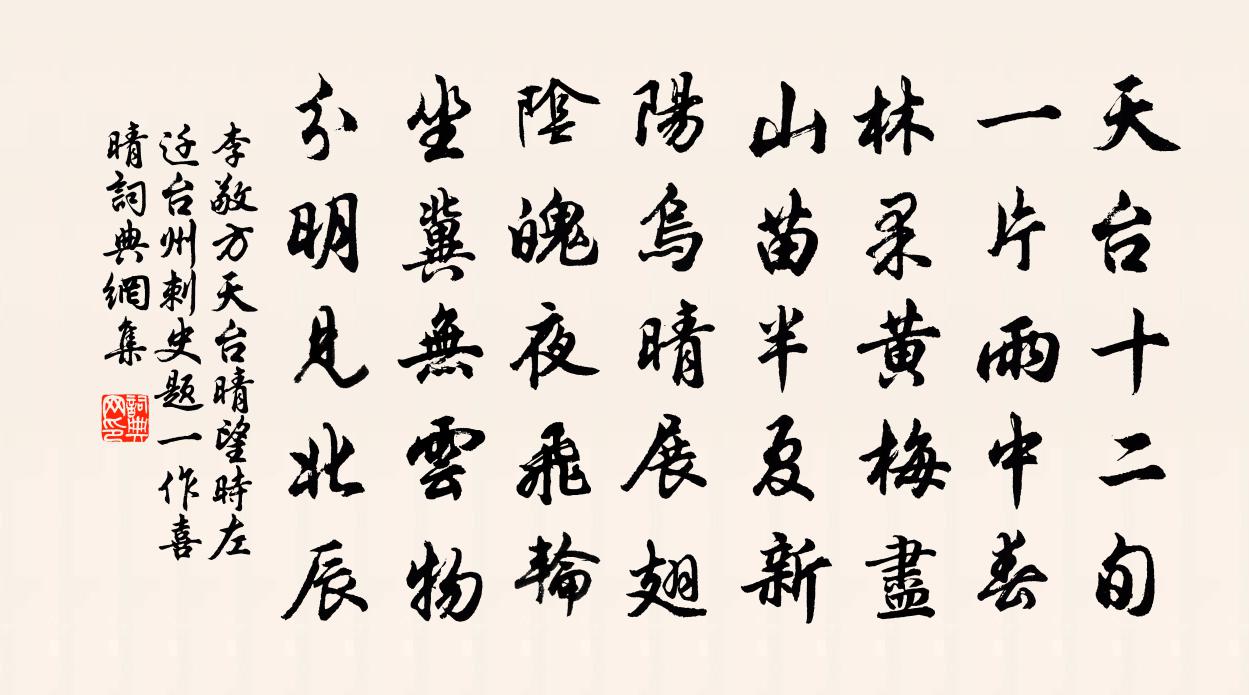 天台十二旬
一片雨中春
林果黃梅盡
山苗半夏新
陽烏晴展翅
陰魄夜飛輪
坐冀無雲物
分明見北辰
李敬方天台晴望時左
迁台州刺史題一作喜
晴詞典網集
詞典网印